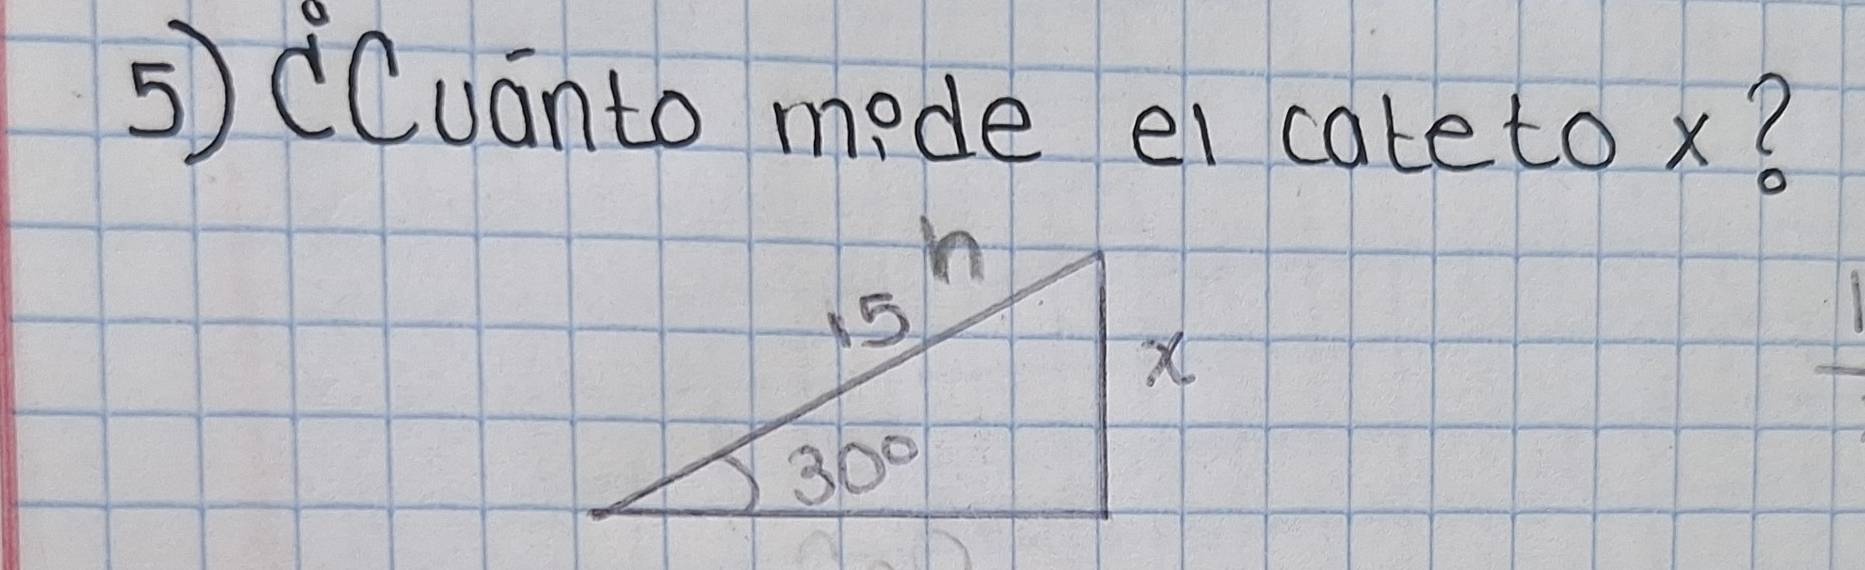 5) ¿Cuánto mide el cateto x?
h
15
x
30°
1